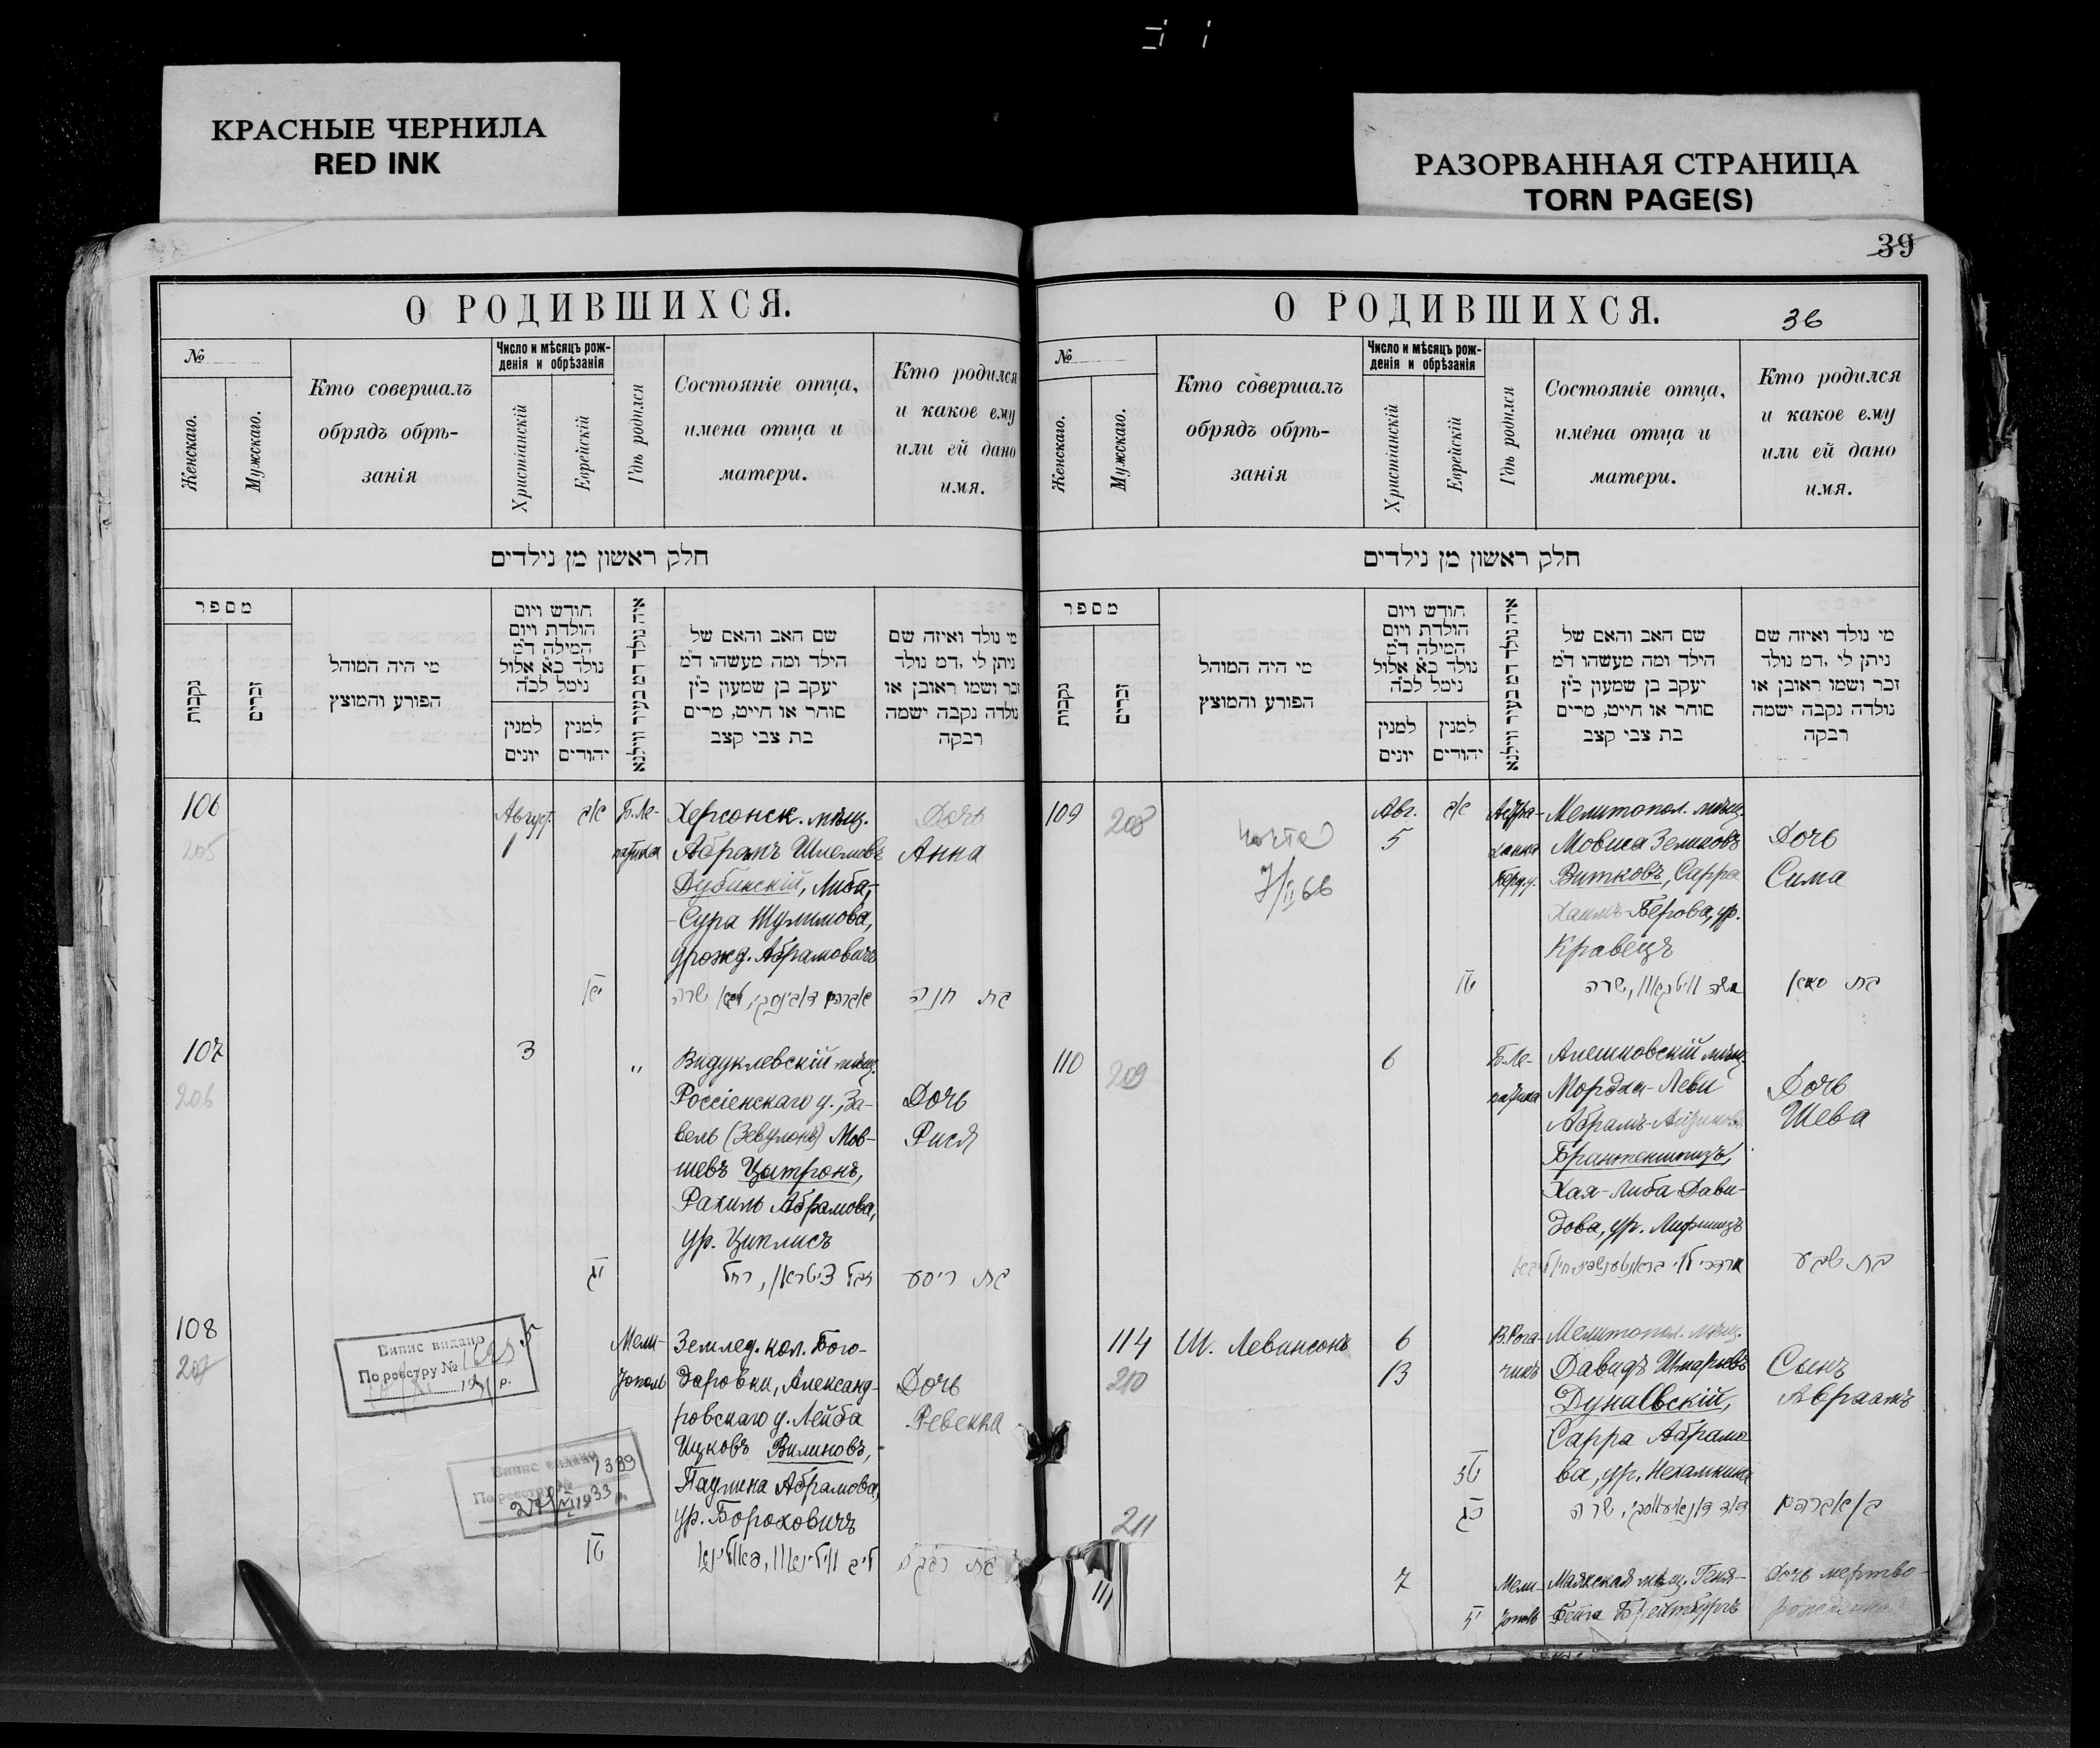 КРАСНЫЕ ЧЕРНИЛА
RED INK
РАЗОРВАННАЯ СТРАНИЦА
TORN PAGE(S)
О РОДИВШИХСЯ.
№
Женскаго.
Мужскаго.
Кто совершалъ
обрядъ обрѣ-
занія
Число и мѣсяцъ рож-
денія и обрѣзанія
Христіанскій
Еврейскій
Гдѣ родился
Состояніе отца,
имена отца и
матери.
Кто родился
и какое ему
или ей дано
имя.
חלק ראשון מן נילדים
מספר
נקבות
זכרים
מי היה המוהל
הפורע והמוצץ
חודש ויום
הולדת ויום
המילה ד״מ
נולד כ״א אלול
נימל לכ״ה
למנין
יונים
למנין
יהודים
איה נולד דמ בעיר ווילנא
שם האב והאם של
הילד ומה מעשהו ד״מ
יעקב בן שמעון כ״ץ
סוחר או חייט, מרים
בת צבי קצב
מי נולד ואיזה שם
ניתן לי, דמ נולד
זכר ושמו ראובן או
נולדה נקבה ישמה
רבקה
106
205
Август.
1
אב
Б. Ле-
патиха
Херсонск. мѣщ.
Абрамъ Шлемовъ
Дубинскій, Либа-
-Сура Шулимова,
урожд. Абрамовичъ
Дочь
Анна
יא
אברהם דובינסקי, ליבא שרה
בת חנה
107
206
3
"
Видуклевскій мѣщ.
Россіенскаго у., За-
вель (Зевулонъ) Мов-
шевъ Цитронъ,
Рахиль Абрамова,
ур. Циплисъ
Дочь
Рися
יג
זבל ציטראן, רחל
בת ריסע
108
207
Випис видано
По реєстру №
19 р.
Мели-
тополь
Землед. кол. Бого-
даровки, Александ-
ровскаго у. Лейба
Ицковъ Вилиновъ,-
Паулина Абрамова,
ур. Бороховичъ
Дочь
Ревекка
Випис видано
По реєстру № 1389
1933 р.
טו
ליב ווילינאוו, פאולינא
בת רבקה
39
О РОДИВШИХСЯ.
36
№
Женскаго.
Мужскаго.
Кто совершалъ
обрядъ обрѣ-
занія
Число и мѣсяцъ рож-
денія и обрѣзанія
Христіанскій
Еврейскій
Гдѣ родился
Состояніе отца,
имена отца и
матери.
Кто родился
и какое ему
или ей дано
имя.
חלק ראשון מן נילדים
מספר
נקבות
זכרים
מי היה המוהל
הפורע והמוצץ
חודש ויום
הולדת ויום
המילה ד״מ
נולד כ״א אלול
נימל לכ״ה
למנין
יונים
למנין
יהודים
איה נולד דמ בעיר ווילנא
שם האב והאם של
הילד ומה מעשהו ד״מ
יעקב בן שמעון כ״ץ
סוחר או חייט, מרים
בת צבי קצב
מי נולד ואיזה שם
ניתן לי, דמ נולד
זכר ושמו ראובן או
נולדה נקבה ישמה
רבקה
109
208
7/II 66
Авг.
5
אב
Мелитопол. мѣщ.
Мовша Зеликовъ
Витковъ, Сарра
Хаимъ-Берова, ур.
Кравецъ
Дочь
Сима
טו
משה וויטקאוו, שרה
בת סימא
110
209
6
Б. Ле-
патиха
Алешковскій мѣщ.
Мордха-Леви
Абрамъ-
Брантеншпизъ,
Хая-Либа Дави-
дова, ур. Лифшицъ
Дочь
Шева
בת שבע
114
210
Ш. Левинсонъ
6
13
В. Рога-
чикъ
Мелитопол. мѣщ.
Давидъ Шмарьевъ
Дунаевскій,
Сарра Абрамо-
ва, ур. Нехамкина
Сынъ
Авраамъ
טז
כג
דוד דונאיעווסקי, שרה
בן אברהם
211
111
7
יז
Мели-
тополь
Маякская мѣщ. Геня-
Бейла
Дочь мертво-
рожденная